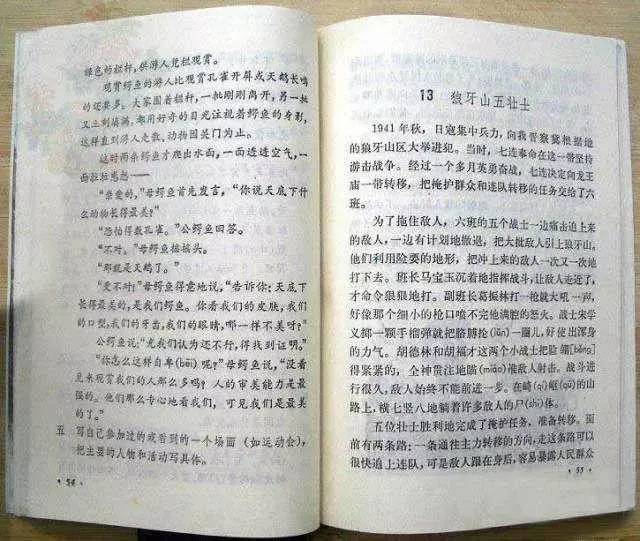 绿色的栏杆，供游人凭栏观赏。
观赏鳄鱼的游人比观赏孔雀开屏或天鹅长鸣
的还要多。大家围着栏杆，一批刚刚离开，另一批
又立刻填满，都用好奇的目光注视着鳄鱼的身影，
这样直到游人走散，动物园关门为止。
这时两条鳄鱼才爬出水面，一面透透空气，一
面拉拉思想——
“亲爱的，”母鳄鱼首先发言，“你说天底下什
么动物长得最美？”
“恐怕得数孔雀。”公鳄鱼回答。
“不对。”母鳄鱼摇摇头。
“那就是天鹅了。”
“更不对！”母鳄鱼得意地说，“告诉你：天底下
长得最美的，是我们鳄鱼。你看我们的皮肤，我们
的口型，我们的牙齿，我们的眼睛，哪一样不美呀？”
公鳄鱼说：“光我们认为还不行，得找到证明。”
“你怎么这样自卑(bēi)呢？”母鳄鱼说，“没看
见来观赏我们的人那么多吗？人的审美能力是最
强的。他们那么专心地看我们，可见我们是最美
的了。”
五 写自己参加过的或看到的一个场面（如运动会），
把主要的人物和活动写具体。
·54·
13 狼牙山五壮士
1941年秋，日寇集中兵力，向我晋察冀根据地
的狼牙山区大举进犯。当时，七连奉命在这一带坚持
游击战争。经过一个多月英勇奋战，七连决定向龙王
庙一带转移，把掩护群众和连队转移的任务交给了六
班。
为了拖住敌人，六班的五个战士一边痛击追上来
的敌人，一边有计划地撤退，把大批敌人引上狼牙山。
他们利用险要的地形，把冲上来的敌人一次又一次地
打下去。班长马宝玉沉着地指挥战斗，让敌人走近了，
才命令狠狠地打。副班长葛振林打一枪就大吼一声，
好像那个细小的枪口喷不完他满腔的怒火。战士宋学
义掷一颗手榴弹就把胳膊抡一圈儿，好使出浑身
的力气。胡德林和胡福才这两个小战士把脸绷(běng)
得紧紧的，全神贯注地瞄(miáo)准敌人射击。战斗进
行很久，敌人始终不能前进一步。在崎(qí)岖(qū)的山
路上，横七竖八地躺着许多敌人的尸(shī)体。
五位壮士胜利地完成了掩护任务，准备转移。面
前有两条路：一条通往主力转移的方向，走这条路可以
很快追上连队，可是敌人跟在身后，容易暴露人民群众
·55·